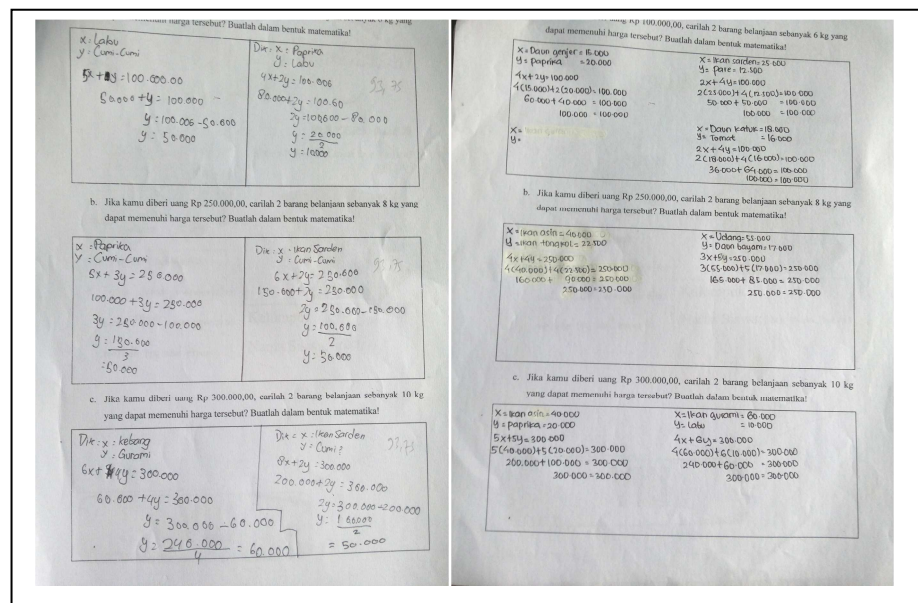 memenuhi harga tersebut? Buatlah dalam bentuk matematika!
x : Labu
y : Cumi-Cumi
5x + y = 100.000.00
50.000 + y = 100.000
y = 100.000 - 50.000
y = 50.000
Dik : x : Paprika
y : Labu
4x + 2y = 100.000
80.000 + 2y = 100.00
2y = 100.000 - 80.000
y = 20.000
2
y = 10000
93,75
b. Jika kamu diberi uang Rp 250.000,00, carilah 2 barang belanjaan sebanyak 8 kg yang
dapat memenuhi harga tersebut? Buatlah dalam bentuk matematika!
x : Paprika
y : Cumi-Cumi
5x + 3y = 250.000
100.000 + 3y = 250.000
3y = 250.000 - 100.000
y = 150.000
3
= 50.000
Dik : x : Ikan Sarden
y : Cumi-Cumi
6x + 2y = 250.000
150.000 + 2y = 250.000
2y = 250.000 - 150.000
y = 100.000
2
y = 50.000
93,75
c. Jika kamu diberi uang Rp 300.000,00, carilah 2 barang belanjaan sebanyak 10 kg
yang dapat memenuhi harga tersebut? Buatlah dalam bentuk matematika!
Dik : x : kebang
y : Gurami
6x + 4y = 300.000
60.000 + 4y = 300.000
y = 300.000 - 60.000
y = 240.000 = 60.000
4
Dik = x : Ikan Sarden
y : Cumi?
8x + 2y = 300.000
200.000 + 2y = 300.000
2y = 300.000 - 200.000
y : 100000
2
= 50.000
93,75
Rp 100.000,00, carilah 2 barang belanjaan sebanyak 6 kg yang
dapat memenuhi harga tersebut? Buatlah dalam bentuk matematika!
X = Daun genjer = 15.000
Y = paprika = 20.000
4x + 2y = 100.000
4(15.000) + 2(20.000) = 100.000
60.000 + 40.000 = 100.000
100.000 = 100.000
X =
Y =
X = Ikan sarden = 25.000
Y = pare = 12.500
2x + 4y = 100.000
2(25.000) + 4(12.500) = 100.000
50.000 + 50.000 = 100.000
100.000 = 100.000
X = Daun katuk = 18.000
Y = Tomat = 16.000
2x + 4y = 100.000
2(18.000) + 4(16.000) = 100.000
36.000 + 64.000 = 100.000
100.000 = 100.000
b. Jika kamu diberi uang Rp 250.000,00, carilah 2 barang belanjaan sebanyak 8 kg yang
dapat memenuhi harga tersebut? Buatlah dalam bentuk matematika!
X = Ikan asin = 40.000
Y = Ikan tongkol = 22.500
4x + 4y = 250.000
4(40.000) + 4(22.500) = 250.000
160.000 + 90.000 = 250.000
250.000 = 250.000
X = Udang = 55.000
Y = Daun bayam = 17.000
3x + 5y = 250.000
3(55.000) + 5(17.000) = 250.000
165.000 + 85.000 = 250.000
250.000 = 250.000
c. Jika kamu diberi uang Rp 300.000,00, carilah 2 barang belanjaan sebanyak 10 kg
yang dapat memenuhi harga tersebut? Buatlah dalam bentuk matematika!
X = Ikan asin = 40.000
Y = paprika = 20.000
5x + 5y = 300.000
5(40.000) + 5(20.000) = 300.000
200.000 + 100.000 = 300.000
300.000 = 300.000
X = Ikan gurami = 60.000
Y = Labu = 10.000
4x + 6y = 300.000
4(60.000) + 6(10.000) = 300.000
240.000 + 60.000 = 300.000
300.000 = 300.000